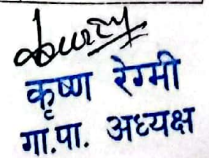 कृष्ण रेग्मी
गा.पा. अध्यक्ष